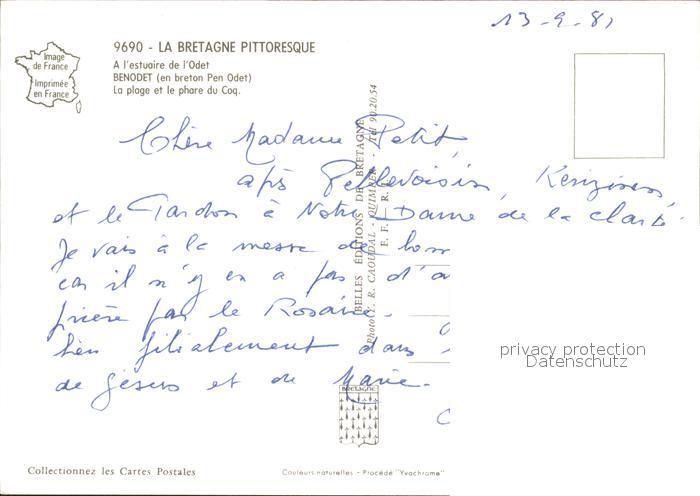 13-9-81
9690 - LA BRETAGNE PITTORESQUE
A l'estuaire de l'Odet
BENODET (en breton Pen Odet)
La plage et le phare du Coq.
Image
de France
Imprimée
en France
Chère Madame Petit,
après Pellevoisin, Kerizinen,
et le Pardon à Notre-Dame de la Clarté
Je vais à la messe de bonn
car il n'y en a pas d'a
prière par le Rosaire.
bien filialement dans
de Jésus et de Marie.
BELLES ÉDITIONS DE BRETAGNE
Photo E. R. CAOUDAL - QUIMPER - Tél 90.20.54
E. F. R. E.
BRETAGNE
privacy protection
Datenschutz
Collectionnez les Cartes Postales
Couleurs naturelles - Procédé "Yvachrome"